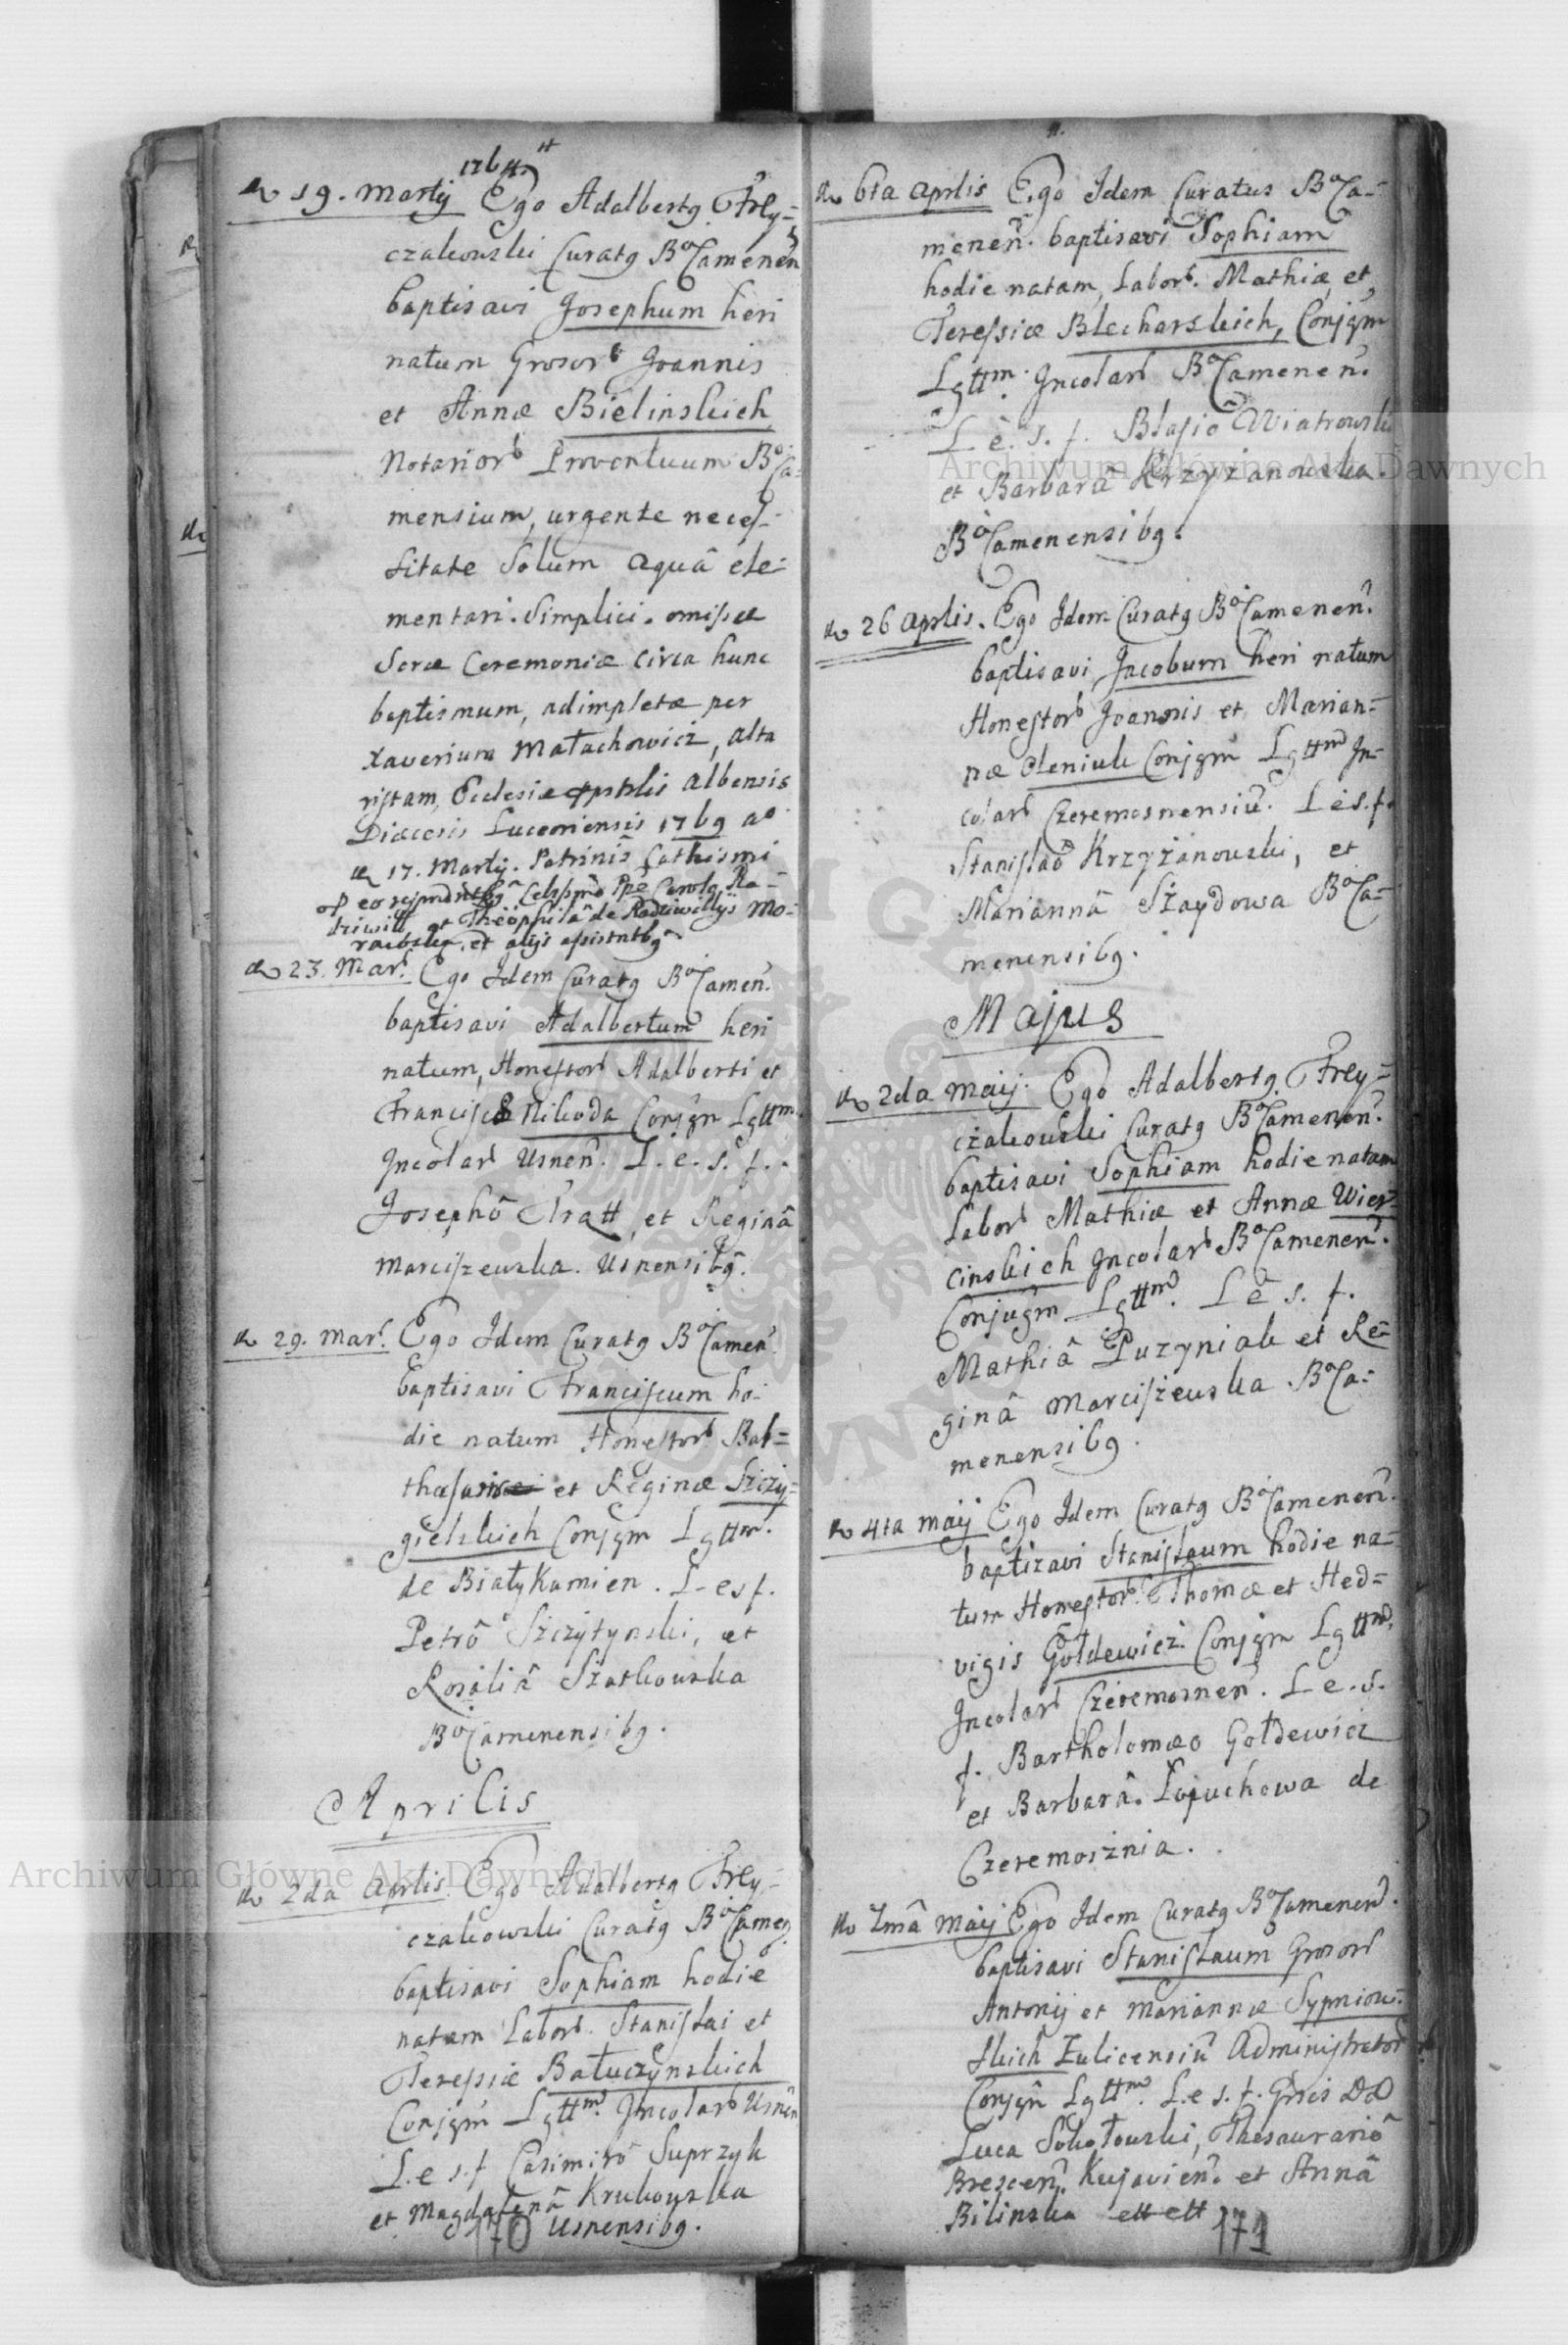 1764
19. Martij Ego Adalberty Frey=
czakowski Curaty BoCamenen
baptisavi Josephum heri
natum Grosor Joannis
et Annæ Bielinskich
Notarior Proventuum BoCa=
mensium, urgente neces=
sitate Solum aquâ ele=
mentari. Simplici. omissæ
Sacræ Ceremoniæ circa hunc
baptismum, adimpletæ per
Xaverium Małachowicz, alta
ristam, Ecclesiæ Albensis
Diæcesis Luceoriensis 1769 ao
17. Martij. Patrinis Cathismi
Celsmo Ppe Carolo Ra=
dziwiłł et Theophilâ de Radziwillijs Mo=
rawska, et alijs assistntby
23. Mar. Ego Idem Curaty BoCamen.
baptisavi Adalbertum heri
natum, Honestor Adalberti et
Francisc Nikoda Conjgm Lgttm.
Incolar Usnen. L. e. s. f.
Josephô Tratt, et Reginâ
Marciszewska. Usnensiby.
29. Mar. Ego Idem Curaty BoCamen.
baptisavi Franciscum ho=
die natum Honestor Bal=
thasari et Reginæ Szczy=
gielskich Conjgm Lgttm.
de Białykamien. L-esf.
Petrô Szczytynski, et
Rosaliâ Szatkowska
BoCamenensiby.
Aprilis
2da Aprlis Ego Adalberty Frey=
czakowski Curaty BoCamen
baptisavi Sophiam hodie
natam Labor. Stanislai et
Teressiæ Batuczynskich
Conjgm Lgttm. Incolar Usnen
L.e s.f Casimirô Suprzyk
et Magdalenâ Krukowska
Usnensiby.
170
6ta Aprlis Ego Idem Curatus BoCa=
menen. baptisavi Sophiam
hodie natam, Labor. Mathiæ et
Teressiæ Blecharskich, Conjgm
Lgttm. Incolar BoCamenen.
L e. s. f. Blasiô Wiatrowski
et Barbarâ Krzyżanowska.
BoCamenensiby.
26 Aprlis. Ego Idem Curaty BoCamenen.
baptisavi Jacobum heri natum
Honestor Joannis et Marian=
næ Oleniuk Conjgm Lgttm In=
colar Czeremosnensiu. L e s. f.
Stanislaô Krzyżanowski, et
Mariannâ Szaydowa BoCa=
menensiby.
Majus
2da Maij. Ego Adalberty Frey=
czakowski Curaty BoCamenen.
baptisavi Sophiam hodie natam
Labor Mathiæ et Annæ Wier=
cinskich Incolar BoCamenen.
Conjugm Lgttm. L e s. f.
Mathiâ Puzyniak et Re=
ginâ Marciszewska BoCa=
menensiby.
4ta Maij Ego Idem Curaty BoCamenen.
baptizavi Stanislaum hodie na=
tum Honestor. Thomæ et Hed=
vigis Gołdewicz Conjgm Lgttm,
Incolar Czeremosnen. L e. s.
f. Bartholomæo Gołdewicz
et Barbarâ. Łopuchowa de
Czeremosznia.
7mâ Maij Ego Idem Curaty BoCamenen.
baptisavi Stanislaum Grosor
Antonij et Mariannæ Sypniow=
skich Zulicensiu Administrator
Conjgm Lgttm. L. e s. f. Gnis DD
Luca Sokołowski, Thesaurariô
Brescen. Kujavien. et Annâ
Bilinska ett ett
171
Archiwum Główne Akt Dawnych
Archiwum Główne Akt Dawnych